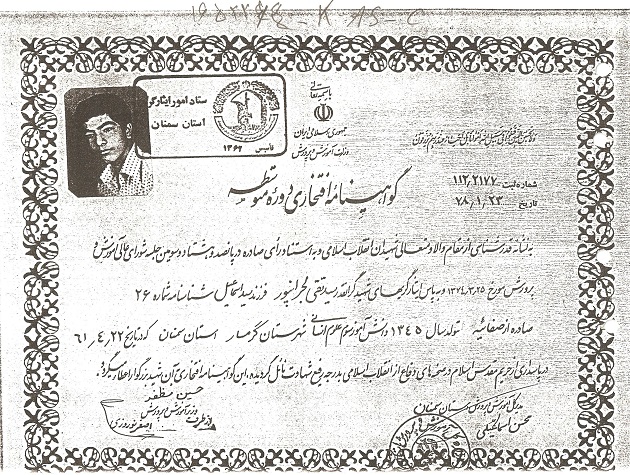 ستاد امور ایثارگران
استان سمنان
تأسیس ۱۳۶۶
باسمه تعالی
جمهوری اسلامی ایران
وزارت آموزش و پرورش
شماره ثبت ۱۱۲٫۲۱۷۷
تاریخ ۷۸٫۱٫۲۳
گواهینامه افتخاری دوره متوسطه
به نشانه قدرشناسی از مقام والا و متعالی شهیدان انقلاب اسلامی و به استناد رأی صادره در پانصد و هشتاد و سومین جلسه شورای عالی آموزش و
پرورش مورخ ۱۳۷۴٫۳٫۲۵ و به پاس ایثارگریهای شهید گرانقدر سید تقی فرزند سید اسماعیل شناسنامه شماره ۲۶
صادره از صفائیه تولد سال ۱۳۴۵ دانش آموز سوم علوم انسانی شهرستان گرمسار استان سمنان که در تاریخ ۶۱٫۴٫۲۲
در پاسداری از حریم مقدس اسلام در صحنه های دفاع از انقلاب اسلامی به درجه رفیع شهادت نائل گردیده، این گواهینامه افتخاری به آن شهید بزرگوار اعطا میگردد.
حسین مظفر
وزیر آموزش و پرورش
از طرف اصغر نوروزی
مدیر کل آموزش و پرورش استان سمنان
محسن اسماعیلی